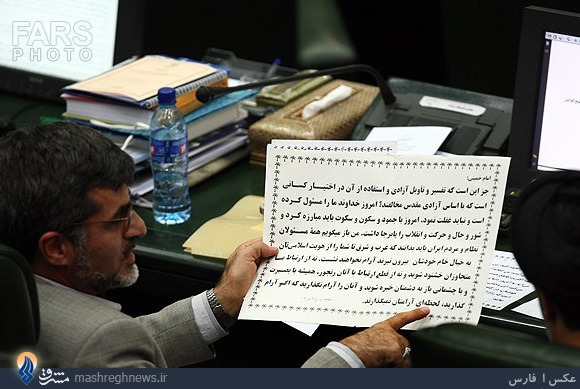 FARS
PHOTO
امام خمینی:
جز این است که تفسیر و تاویل آزادی و استفاده از آن در اختیار کسانی
است که با اساس آزادی مقدس مخالفتند؟ امروز خداوند ما را مسئول کرده
است و نباید غفلت نمود. امروز با جمود و سکون و سکوت باید مبارزه کرد و
شور و حال و حرکت و انقلاب را پابرجا داشت. من باز میگویم همه مسئولان
نظام و مردم ایران باید بدانند که غرب و شرق تا شما را از هویت اسلامی‌تان
به خیال خام خودشان بیرون نبرند آرام نخواهند نشست. نه از ارتباط با
متجاوزان خشنود شوید و نه از قطع ارتباط با آنان رنجور، همیشه با بصیرت
و با چشمانی باز به دشمنان خیره شوید و آنان را آرام نگذارید که اگر آرام
گذارید، لحظه‌ای آرامتان نمیگذارند.
مشرق
mashreghnews.ir
عکس | فارس